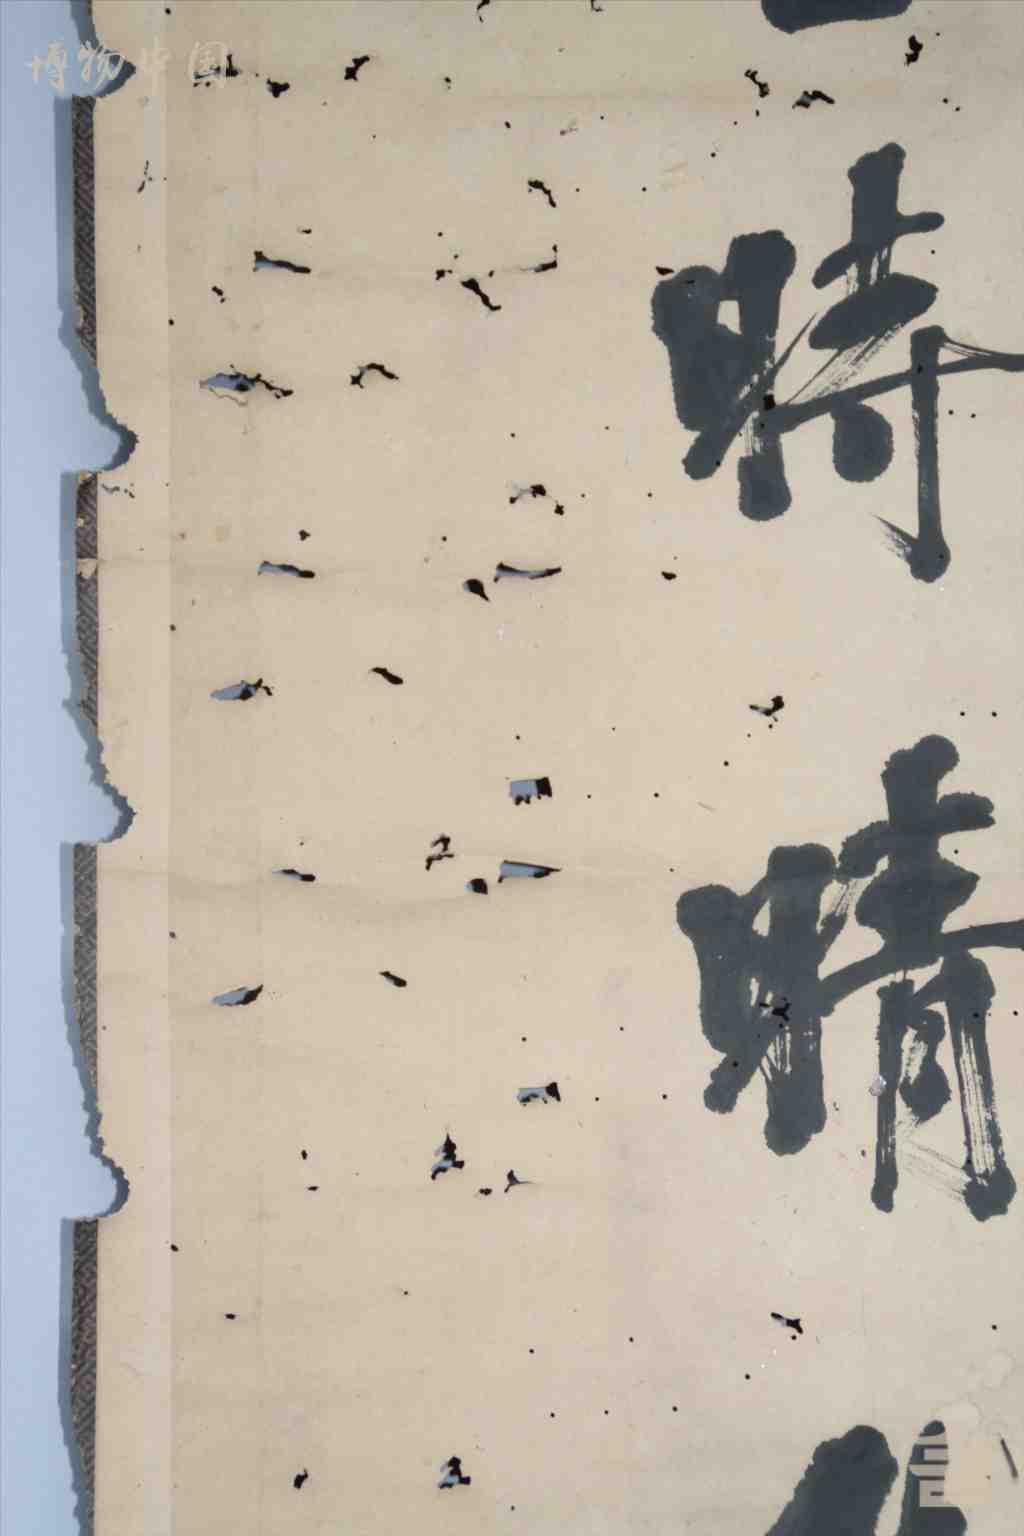 博物中国
時
晴